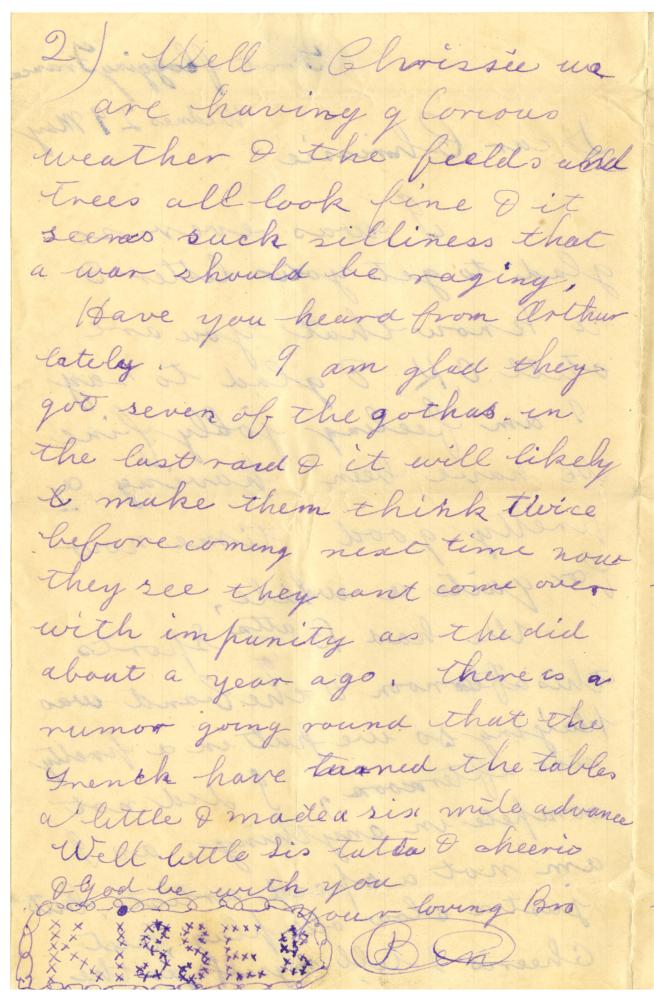 2) Well Chrissie we
are having glorious
weather & the feelds and
trees all look fine & it
seems such silliness that
a war should be raging,
Have you heard from Arthur
lately. I am glad they
got seven of the gothas in
the last raid & it will likely
& make them think twice
before coming next time now
they see they cant come over
with impunity as the did
about a year ago. there is a
rumor going round that the
French have turned the tables
a little & made a six mile advance
Well little sis tatta & cheerio
& God be with you
your loving Bro
Ben